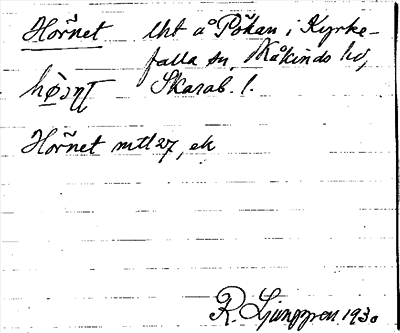 Hörnet lht å Pökan i Kyrke-
falla sn, Kåkinds hd,
Skarab. l.
Hörnet mtl 27, ek
R. Ljunggren 1930